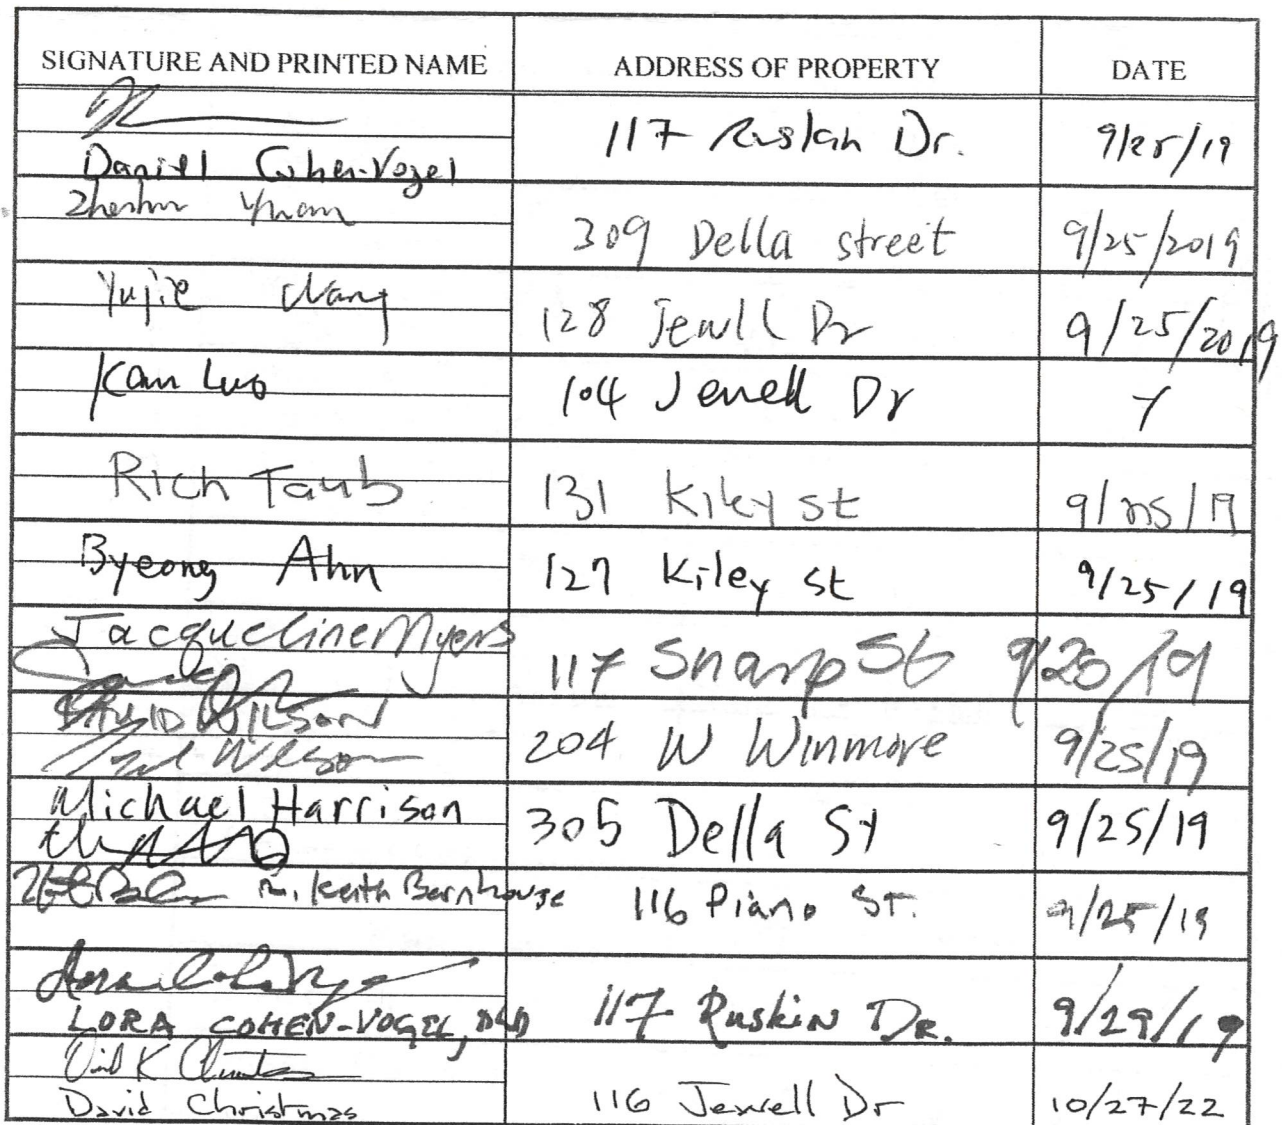 SIGNATURE AND PRINTED NAME ADDRESS OF PROPERTY DATE
117 Ruskin Dr. 9/25/19
Daniel Cohen-Vogel
309 Della street 9/25/2019
Yujie Wang 128 Jewll Dr 9/25/2019
Kam Luo 104 Jewell Dr
Rich Taub 131 Kiley st 9/25/19
Byeong Ahn 127 Kiley st 9/25/19
Jacqueline Myers 117 Sharp St
David Wilson 204 W Winmore 9/25/19
Michael Harrison 305 Della St 9/25/19
R. Keith Barnhouse 116 Piano St. 9/25/19
117 Ruskin Dr. 9/29/19
LORA COHEN-VOGEL, PhD
David K Christmas
David Christmas 116 Jewell Dr 10/27/22